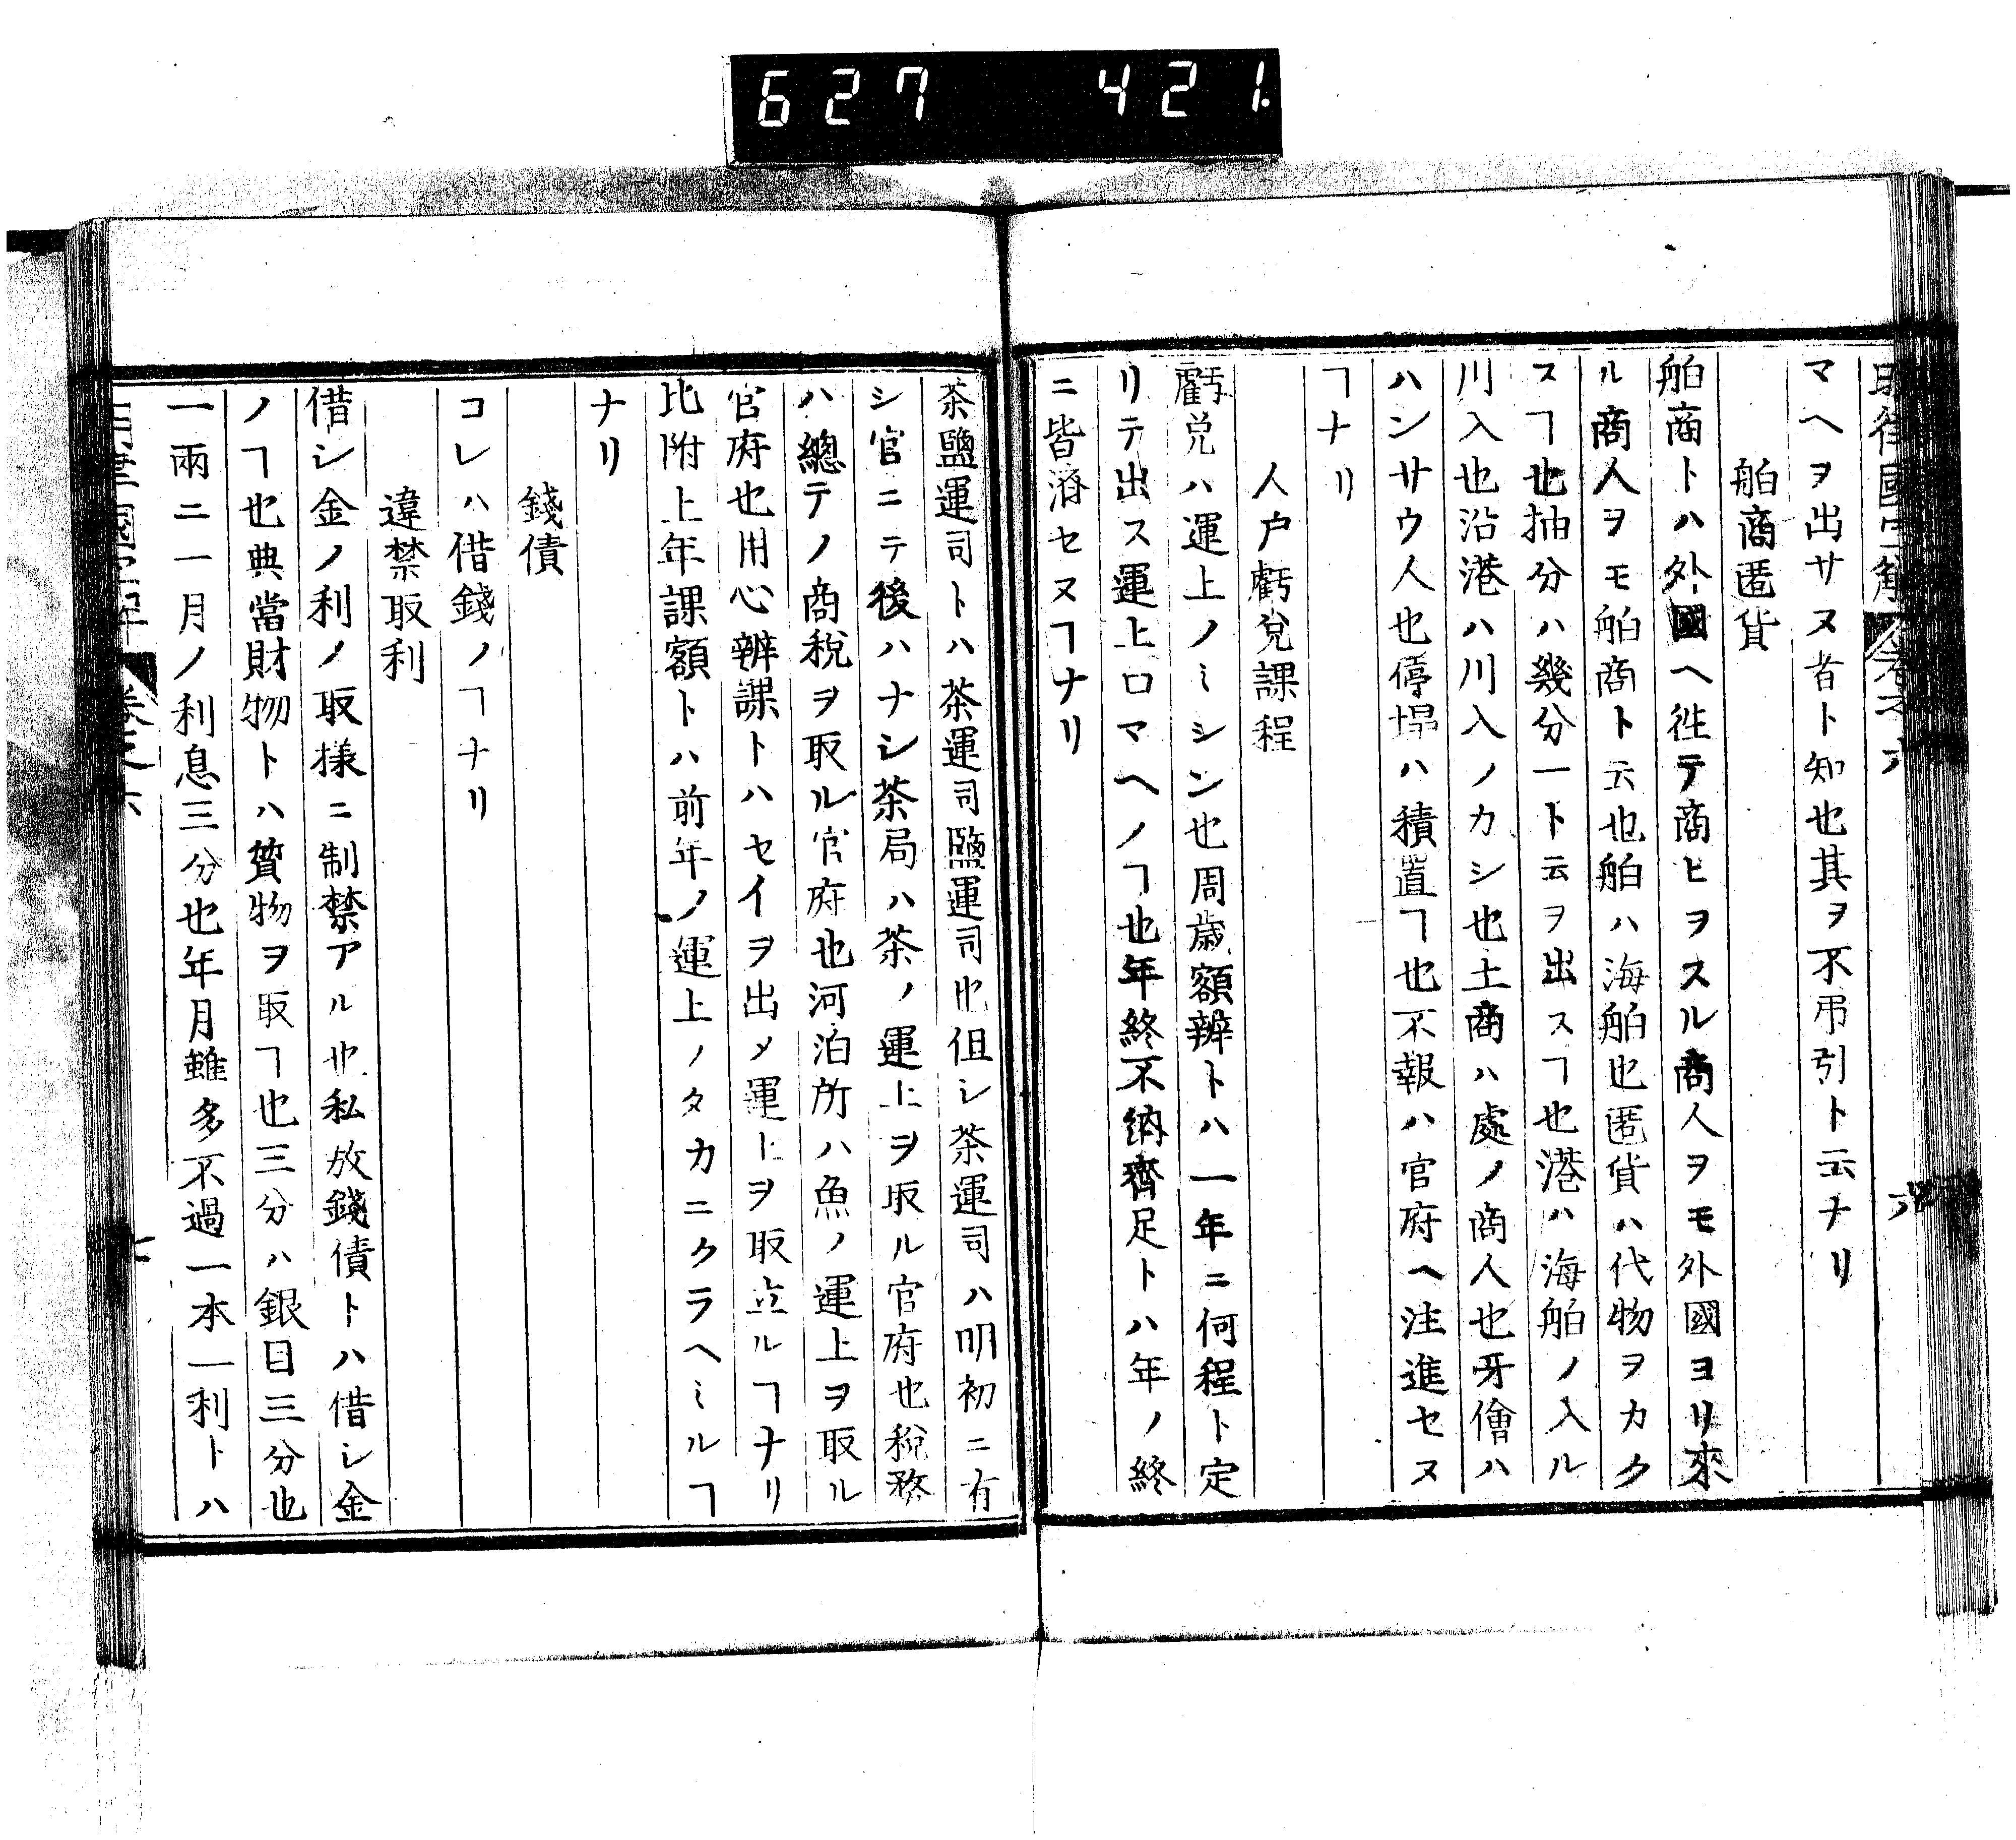 627 421
明律國字解 卷之六
マヘヲ出サヌ者ト知也其ヲ不弔引ト云ナリ
舶商匿貨
舶商トハ外國ヘ徃テ商ヒヲスル商人ヲモ外國ヨリ來
ル商人ヲモ舶商ト云也舶ハ海舶也匿貨ハ代物ヲカク
スヿ也抽分ハ幾分一ト云ヲ出スヿ也港ハ海舶ノ入ル
川入也沿港ハ川入ノカシ也土商ハ處ノ商人也牙儈ハ
ハンサウ人也停塌ハ積置ヿ也不報ハ官府ヘ注進セヌ
ヿナリ
人户虧兌課程
虧兌ハ運上ノミシン也周歳額辨トハ一年ニ何程ト定
リテ出ス運上ロマヘノヿ也年終不納齊足トハ年ノ終
ニ皆濟セヌヿナリ
茶鹽運司トハ茶運司鹽運司也但シ茶運司ハ明初ニ有
シ官ニテ後ハナシ茶局ハ茶ノ運上ヲ取ル官府也稅務
ハ總テノ商稅ヲ取ル官府也河泊所ハ魚ノ運上ヲ取ル
官府也用心辨課トハセイヲ出メ運上ヲ取立ルヿナリ
比附上年課額トハ前年ノ運上ノタカニクラヘミルヿ
ナリ
錢債
コレハ借錢ノヿナリ
違禁取利
借シ金ノ利ノ取様ニ制禁アル也私放錢債トハ借シ金
ノヿ也典當財物トハ質物ヲ取ヿ也三分ハ銀目三分也
一兩ニ一月ノ利息三分也年月雖多不過一本一利トハ
卷之六
七